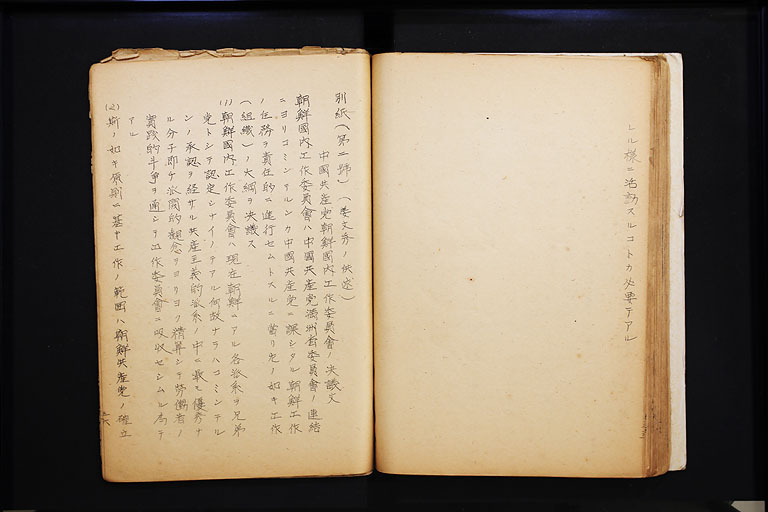 レル様ニ活動スルコトカ必要テアル
別紙(第二號)(姜文秀ノ供述)
中國共産党朝鮮國内工作委員會ノ決議文
朝鮮國内工作委員會ハ中國共産党満洲省委員會ノ連結
ニヨリコミンテルンカ中國共産党ニ課シタル朝鮮工作
ノ任務ヲ責任的ニ進行セムトスルニ當リ先ノ如キ工作
(組織)ノ大綱ヲ決議ス
(1)朝鮮國内工作委員會ハ現在朝鮮ニアル各派系ヲ兄弟
党トシテ認定シナイノテアル何故ナラハコミンテル
ンノ承認ヲ経サル共産主義的派系ノ中ニ最モ優秀ナ
ル分子即チ派閥的観念ヲヨリヨク精算シテ労働者ノ
實践的斗争ヲ通シテ工作委員會ニ吸収セシムル為テ
アル
(2)斯ノ如キ原則ニ基キ工作ノ範囲ハ朝鮮共産党ノ確立